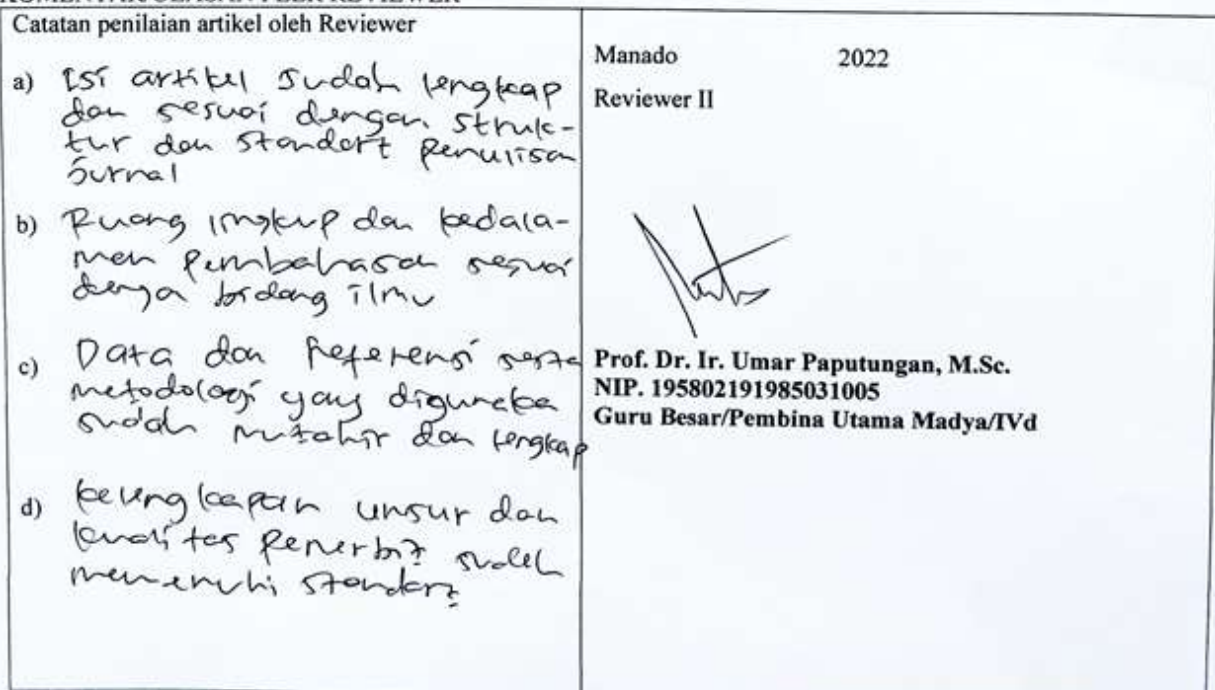 Catatan penilaian artikel oleh Reviewer
a) Isi artikel sudah lengkap
dan sesuai dengan struk-
tur dan standart penulisan
jurnal
b) Ruang lingkup dan kedala-
man pembahasan sesuai
denga bidang ilmu
c) Data dan Referensi serta
metodologi yang digunaka
sudah mutahir dan lengkap
d) kelengkapan unsur dan
kualitas Penerbit sudah
memenuhi standart
Manado 2022
Reviewer II
Prof. Dr. Ir. Umar Paputungan, M.Sc.
NIP. 195802191985031005
Guru Besar/Pembina Utama Madya/IVd